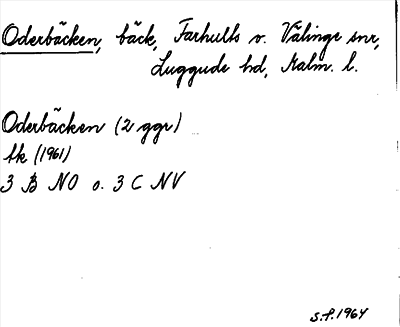 Oderbäcken, bäck, Farhults o. Välinge snr,
Luggude hd, Malm. l.
Oderbäcken (2 ggr)
tk (1961)
3 B NO o. 3 C NV
S.f. 1964